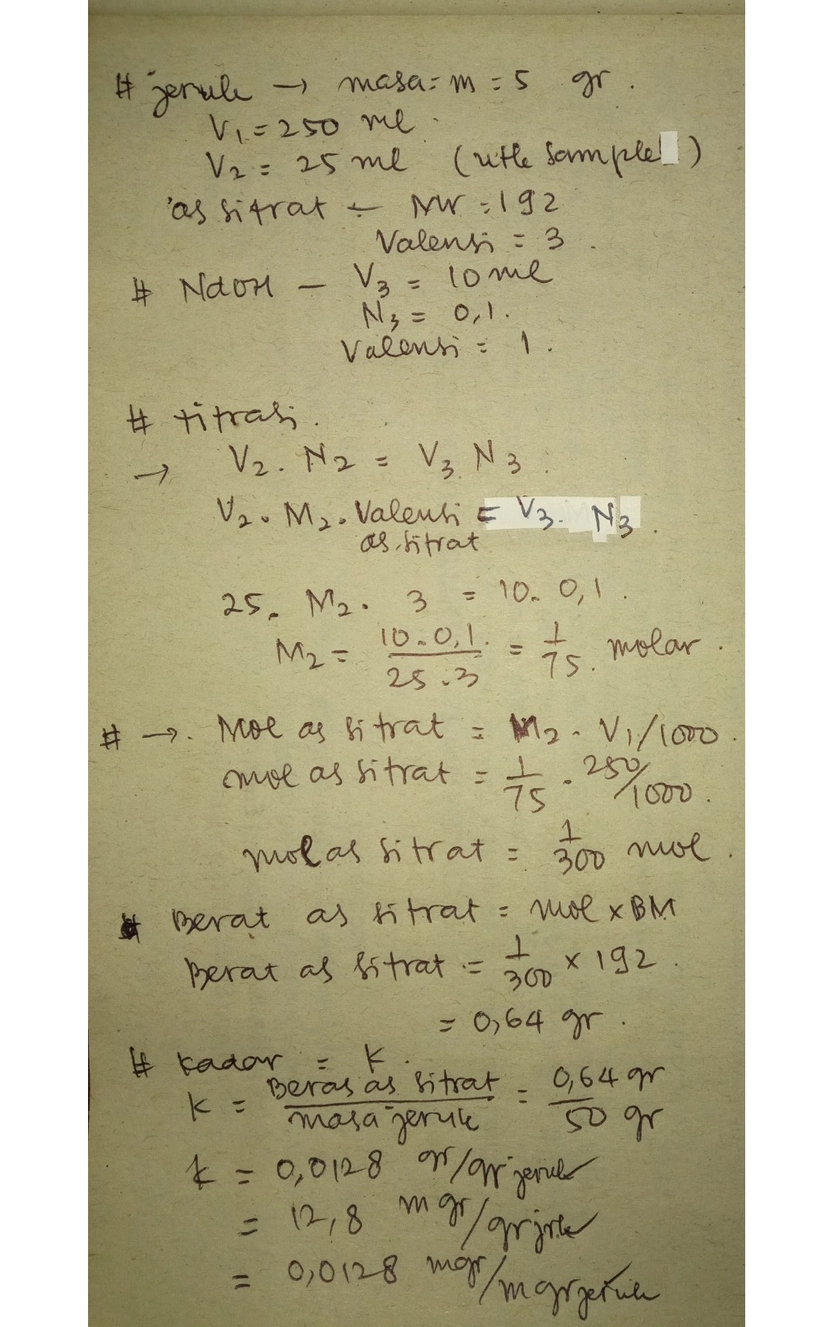 # jeruk → masa = m = 5 gr.
V₁ = 250 ml.
V₂ = 25 ml (utk sample)
as sitrat ← MW = 192
Valensi = 3.
# NaOH — V₃ = 10 ml
N₃ = 0,1.
Valensi = 1.
# titrasi.
→ V₂ . N₂ = V₃ N₃.
V₂ . M₂ . Valensi = V₃ . N₃.
as sitrat
25 . M₂ . 3 = 10 . 0,1.
M₂ = 10 . 0,1. / 25 . 3 = 1/75. molar.
# →. Mol as sitrat = M₂ . V₁/1000.
mol as sitrat = 1/75 . 250/1000.
mol as sitrat = 1/300 mol.
# Berat as sitrat = mol x BM
Berat as sitrat = 1/300 x 192.
= 0,64 gr.
# kadar = K.
K = Beras as sitrat / masa jeruk = 0,64 gr / 50 gr
k = 0,0128 gr/gr jeruk
= 12,8 mgr/gr jrk
= 0,0128 mgr/mgr jeruk